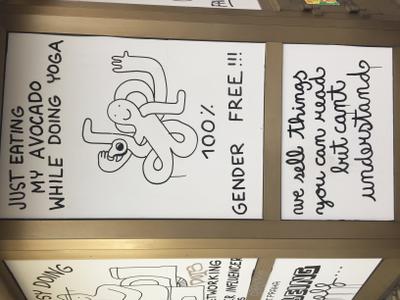 JUST EATING
MY AVOCADO
WHILE DOING YOGA
100%
GENDER FREE!!!
we sell things
you can read
but can't
understand
DOING
INFLUENCER